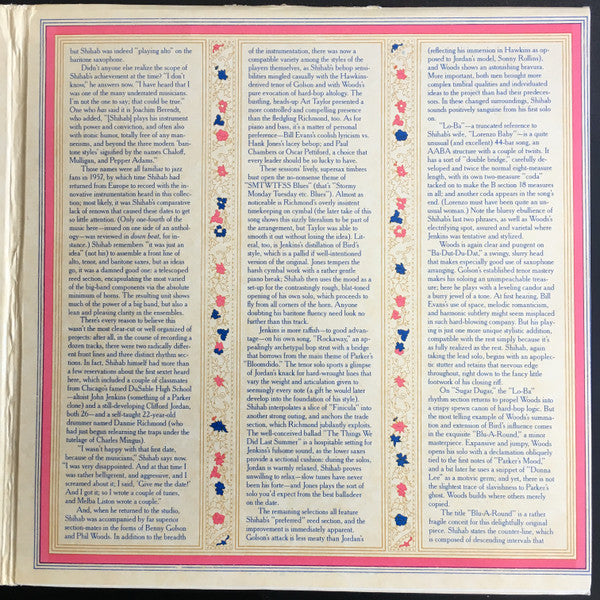 but Shihab was indeed "playing alto" on the
baritone saxophone.
Didn't anyone else realize the scope of
Shihab's achievement at the time? "I don't
know," he answers now. "I have heard that I
was one of the many underrated musicians.
I'm not the one to say; that could be true."
One who has said it is Joachim Berendt,
who added, "[Shihab] plays his instrument
with power and conviction, and often also
with ironic humor, totally free of any man-
nerisms, and beyond the three modern 'bar-
itone styles' signified by the names Chaloff,
Mulligan, and Pepper Adams."
Those names were all familiar to jazz
fans in 1957, by which time Shihab had
returned from Europe to record with the in-
novative instrumentation heard in this collec-
tion; most likely, it was Shihab's comparative
lack of renown that caused these dates to get
so little attention. (Only one-fourth of the
music here—issued on one side of an anthol-
ogy—was reviewed in down beat, for in-
stance.) Shihab remembers "it was just an
idea" (not his) to assemble a front line of
alto, tenor, and baritone saxes, but as ideas
go, it was a damned good one: a telescoped
reed section, encapsulating the most varied
of the big-band components via the absolute
minimum of horns. The resulting unit shows
much of the power of a big band, but also a
lean and pleasing clarity in the ensembles.
There's every reason to believe this
wasn't the most clear-cut or well organized of
projects: after all, in the course of recording
a dozen tracks, there were two radically differ-
ent front lines and three distinct rhythm sec-
tions. In fact, Shihab himself had more than
a few reservations about the first sextet heard
here, which included a couple of classmates
from Chicago's famed DuSable High School
—altoist John Jenkins (something of a Parker
clone) and a still-developing Clifford Jordan,
both 26—and a self-taught 22-year-old
drummer named Dannie Richmond (who
had just begun relearning the traps under the
tutelage of Charles Mingus).
"I wasn't happy with that first date,
because of the musicians," Shihab says now.
"I was very disappointed. And at that time I
was rather belligerent, and aggressive, and I
screamed about it; I said, 'Give me the date!'
And I got it; so I wrote a couple of tunes,
and Melba Liston wrote a couple."
And, when he returned to the studio,
Shihab was accompanied by far superior
section-mates in the forms of Benny Golson
and Phil Woods. In addition to the breadth
of the instrumentation, there was now a
compatible variety among the styles of the
players themselves, as Shihab's bebop sensi-
bilities mingled casually with the Hawkins-
derived tenor of Golson and with Woods'
pure evocation of hard-bop altology. The
bustling, beads-up Art Taylor presented a
more controlled and compelling presence
than the fledgling Richmond, too. As for
piano and bass, it's a matter of personal
preference—Bill Evans's coolish lyricism vs.
Hank Jones's lacey bebop; and Paul
Chambers or Oscar Pettiford, a choice that
every leader should be so lucky to have.
These sessions lively, supersax timbres
bust open the no-nonsense theme of
"SMTWTFSS Blues" (that's "Stormy
Monday Tuesday etc. Blues"). Almost as
noticeable is Richmond's overly insistent
timekeeping on cymbal (the later take of this
song shows this sizzly literalism to be part of
the arrangement, but Taylor was able to
smooth it out without losing the idea). Lit-
eral, too, is Jenkins's distillation of Bird's
style, which is a pallid if well-intentioned
version of the original. Jones tempers the
harsh cymbal work with a rather gentle
piano break; Shihab then uses the mood as a
set-up for the contrastingly rough, blat-toned
opening of his own solo, which proceeds to
fly from all corners of the horn. Anyone
doubting his baritone fluency need look no
further than this track.
Jenkins is more raffish—to good advan-
tage—on his own song, "Rockaway," an ap-
pealingly archetypal bop strut with a bridge
that borrows from the main theme of Parker's
"Bloomdido." The tenor solo sports a glimpse
of Jordan's knack for hard-wrought lines that
vary the weight and articulation given to
seemingly every note (a gift he would later
develop into the foundation of his style).
Shihab interpolates a slice of "Finicula" into
another strong outing, and anchors the trade
section, which Richmond jubilantly exploits.
The well-conceived ballad "The Things We
Did Last Summer" is a hospitable setting for
Jenkins's fulsome sound, as the lower saxes
provide a sectional cushion; during the solos,
Jordan is warmly relaxed. Shihab proves
unwilling to relax—slow tunes have never
been his forte—and Jones plays the sort of
solo you'd expect from the best balladeer
on the date.
The remaining selections all feature
Shihab's "preferred" reed section, and the
improvement is immediately apparent.
Golson's attack is less meaty than Jordan's
(reflecting his immersion in Hawkins as op-
posed to Jordan's model, Sonny Rollins),
and Woods shows an astonishing bravura.
More important, both men brought more
complex timbral qualities and individuated
ideas to the project than had their predeces-
sors. In these changed surroundings, Shihab
sounds positively sanguine from his first solo
on.
"Lo-Ba"—a truncated reference to
Shihab's wife, "Lorenzo Baby"—is a quite
unusual (and excellent) 44-bar song, an
AABA structure with a couple of twists. It
has a sort of "double bridge," carefully de-
veloped and twice the normal eight-measure
length, with its own two-measure "coda"
tacked on to make the B section 18 measures
in all; and another coda appears in the song's
end. (Lorenzo must have been quite an un-
usual woman.) Note the blurry ebullience of
Shihab's last two phrases, as well as Woods's
electrifying spot, assured and varietal where
Jenkins was tentative and stylized.
Woods is again clear and pungent on
"Ba-Dut-Du-Dat," a swingy, slurry head
that makes especially good use of saxophone
arranging. Golson's established tenor mastery
makes his soloing an unimpeachable treas-
ure; here he plays with a leveling candor and
a burry jewel of a tone. At first hearing, Bill
Evans's use of space, melodic romanticism,
and harmonic subtlety might seem misplaced
in such hard-blowing company. But his play-
ing is just one more unique stylistic addition,
compatible with the rest simply because it's
as fully realized as the rest. Shihab, again
taking the lead solo, begins with an apoplec-
tic stutter and retains that nervous edge
throughout, right down to the fancy little
footwork of his closing riff.
On "Sugar Dugar," the "Lo-Ba"
rhythm section returns to propel Woods into
a crispy spewn canon of hard-bop logic. But
the most telling example of Woods's summa-
tion and extension of Bird's influence comes
in the exquisite "Blu-A-Round," a minor
masterpiece. Expansive and jumpy, Woods
opens his solo with a declamation obliquely
tied to the first notes of "Parker's Mood,"
and a bit later he uses a snippet of "Donna
Lee" as a motivic germ; and yet, there is not
the slightest trace of slavishness to Parker's
ghost. Woods builds where others merely
copied.
The title "Blu-A-Round" is a rather
fragile conceit for this delightfully original
piece. Shihab states the counter-line, which
is composed of descending intervals that